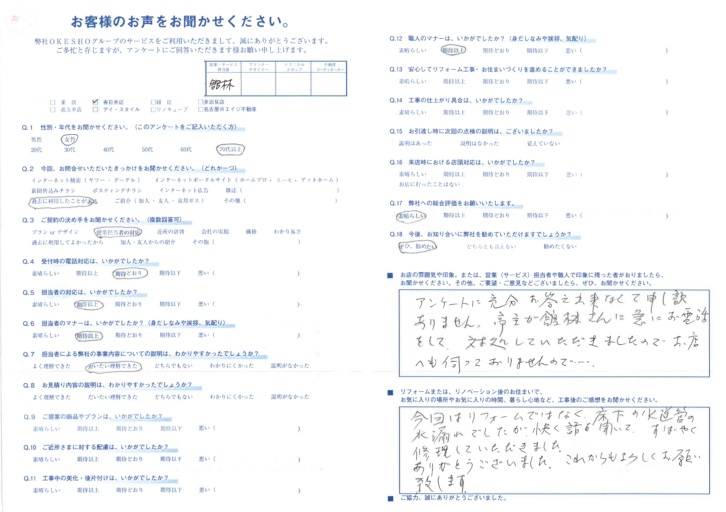 お客様のお声をお聞かせください。
弊社OKESHOグループのサービスをご利用いただきまして、誠にありがとうございます。
ご多忙と存じますが、アンケートにご回答いただきます様お願い申し上げます。
営業・サービス担当者
プランナーデザイナー
テクニカルスタッフ
不動産コーディネーター
舘林
□本店 ☑春日井店 □緑店 □多治見店
□名古屋RIイジ不動産
Q.1 性別・年代をお聞かせください。(このアンケートをご記入いただく方)
男性 女性
20代 30代 40代 50代 60代 70代以上
Q.2 今回、お問合せいただいたきっかけをお聞かせください。(どれか一つ)
インターネット検索(ヤフー・グーグル) インターネットポータルサイト(ホームプロ・スーモ・アットホーム)
新聞折込みチラシ ポスティングチラシ インターネット広告 雑誌( )
過去に利用したことがある ご紹介(知人・友人・東邦ガス) その他( )
Q.3 ご契約の決め手をお聞かせください。(複数回答可)
プラン or デザイン 営業担当者の対応 近所の評判 会社の信頼 価格 わかり易さ
過去に利用してよかったから 知人・友人からの紹介 その他( )
Q.4 受付時の電話対応は、いかがでしたか?
素晴らしい 期待以上 期待どおり 期待以下 悪い( )
Q.5 担当者の対応は、いかがでしたか?
素晴らしい 期待以上 期待どおり 期待以下 悪い( )
Q.6 担当者のマナーは、いかがでしたか?(身だしなみや挨拶、気配り)
素晴らしい 期待以上 期待どおり 期待以下 悪い( )
Q.7 担当者による弊社の事業内容についての説明は、わかりやすかったでしょうか?
よく理解できた だいたい理解できた どちらでもない わかりにくかった 説明がなかった
Q.8 お見積り内容の説明は、わかりやすかったでしょうか?
よく理解できた だいたい理解できた どちらでもない わかりにくかった 説明がなかった
Q.9 ご提案の商品やプランは、いかがでしたか?
素晴らしい 期待以上 期待どおり 期待以下 悪い( )
Q.10 ご近所さまに対する配慮は、いかがでしたか?
素晴らしい 期待以上 期待どおり 期待以下 悪い( )
Q.11 工事中の美化・後片付けは、いかがでしたか?
素晴らしい 期待以上 期待どおり 期待以下 悪い( )
Q.12 職人のマナーは、いかがでしたか?(身だしなみや挨拶、気配り)
素晴らしい 期待以上 期待どおり 期待以下 悪い( )
Q.13 安心してリフォーム工事・お住まいづくりを進めることができましたか?
素晴らしい 期待以上 期待どおり 期待以下 悪い( )
Q.14 工事の仕上がり具合は、いかがでしたか?
素晴らしい 期待以上 期待どおり 期待以下 悪い( )
Q.15 お引渡し時に次回の点検の説明は、ございましたか?
説明はあった 説明はなかった 覚えていない
Q.16 来店時における店頭対応は、いかがでしたか?
素晴らしい 期待以上 期待どおり 期待以下 悪い( )
お店に行ったことはない
Q.17 弊社への総合評価をお願いいたします。
素晴らしい 期待以上 期待どおり 期待以下 悪い( )
Q.18 今後、お知り合いに弊社を勧めていただけますでしょうか?
ぜひ、勧めたい どちらとも言えない 勧めたくない
■ お店の雰囲気や印象。または、営業(サービス)担当者や職人で印象に残った者がおりましたら、
お聞かせください。その他、ご要望・ご意見などございましたら、ぜひ、お聞かせください。
アンケートに充分お答え出来なくて申し訳
ありません。帝主が舘林さんに急にお電話
をして、対処していただきましたのでお店
へも伺っておりませんので・・・。
■ リフォームまたは、リノベーション後のお住まいで、
お気に入りの場所やお気に入りの時間、暮らし心地など、工事後のご感想をお聞かせください。
今回はリフォームではなく、床下の水道管の
水漏れでしたが快く話を聞いて、すばやく
修理していただきました。
ありがとうございました。これからもよろしくお願い
致します
■ ご協力、誠にありがとうございました。